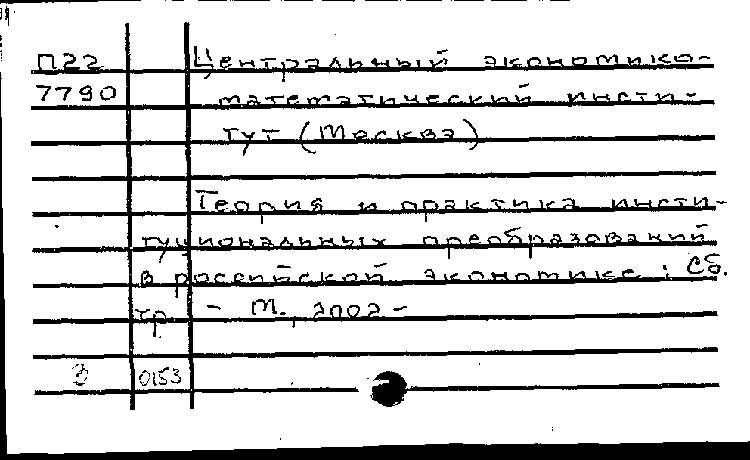 П22 Центральный экономико-
7790 математический инсти-
тут (Москва)
Теория и практика инсти-
туциональных преобразований
в российской экономике: Сб.
тр. - М., 2002 -
0153